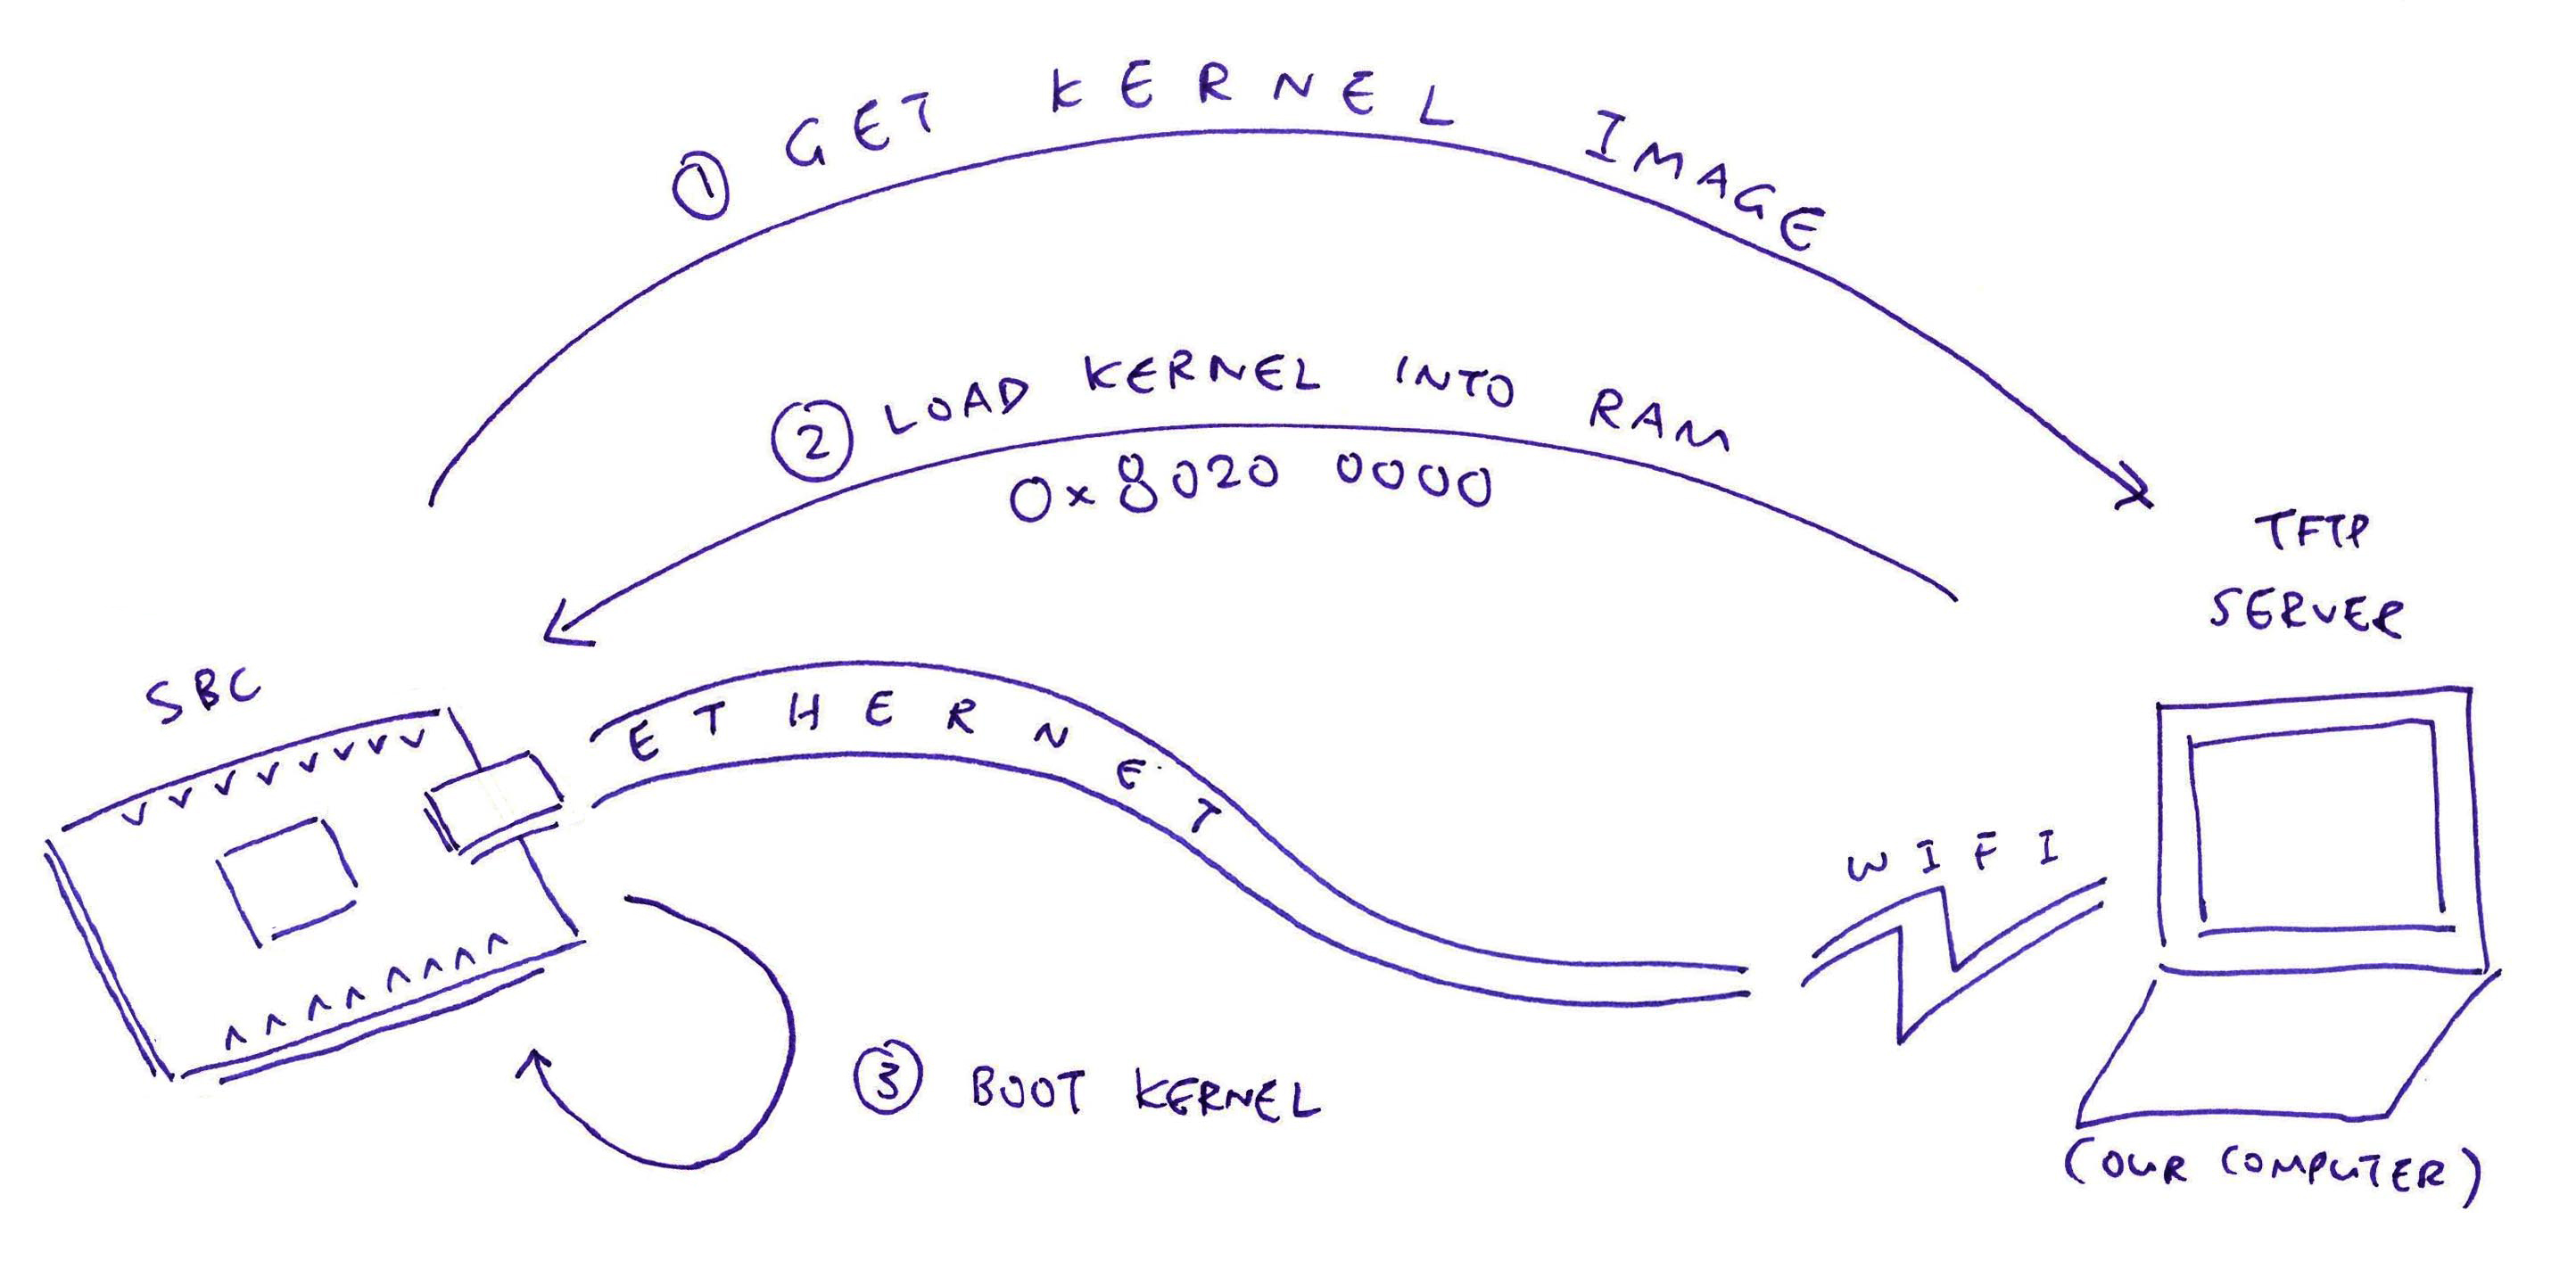 ① GET KERNEL IMAGE
② LOAD KERNEL INTO RAM
0x8020 0000
TFTP
SERVER
SBC
ETHERNET
WIFI
③ BOOT KERNEL
(OUR COMPUTER)